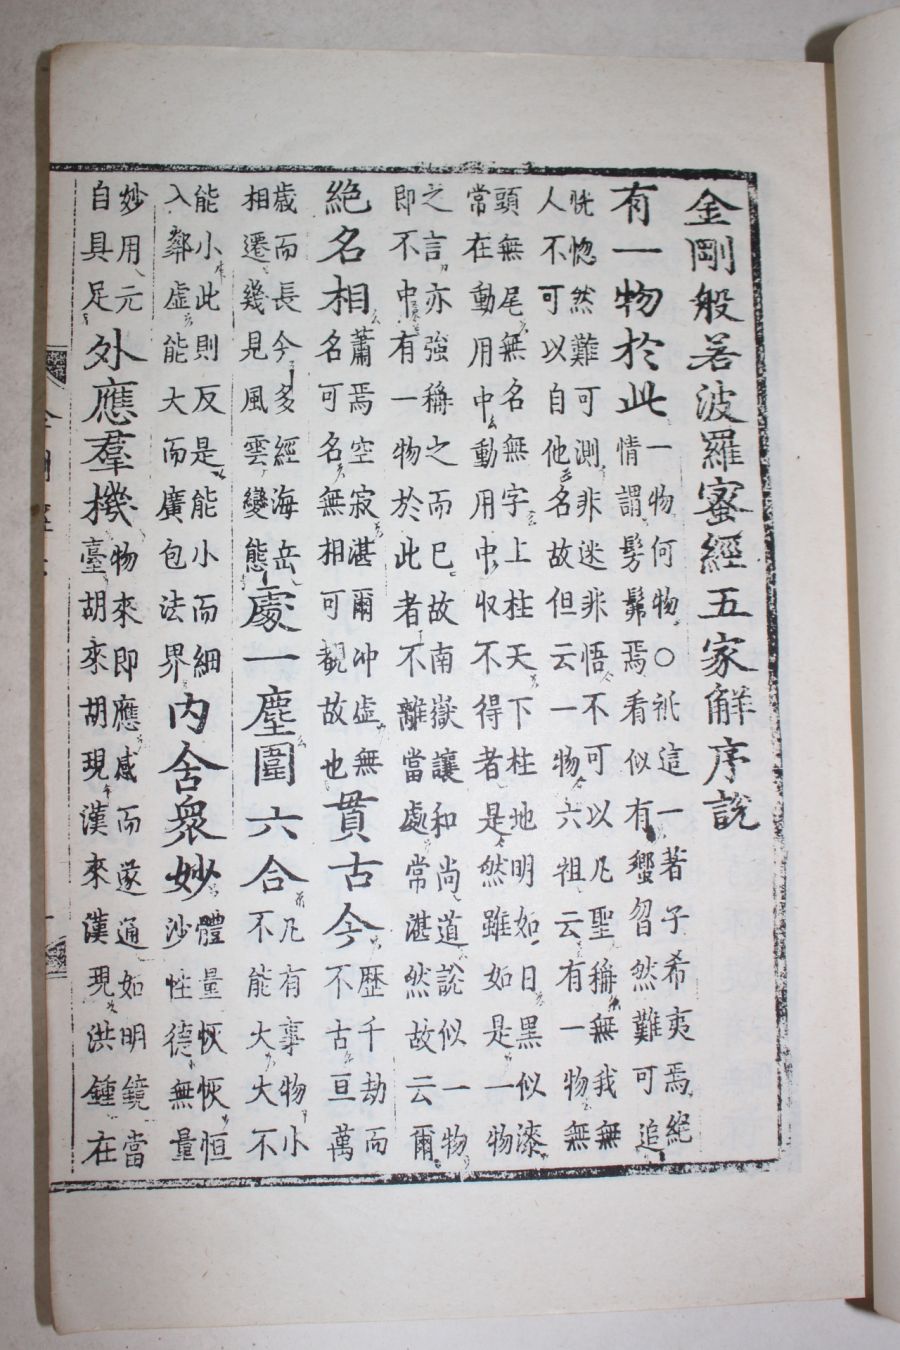 金剛般若波羅蜜經五家解序說
有一物於此
一物何物○祇這一著子希夷焉絕
情謂髣髴焉看似有蠁曶然難可追
恍惚然難可測非迷非悟不可以凡聖稱無我無
人不可以自他名故但云一物六祖云有一物無
頭無尾無名無字上柱天下柱地明如日黑似漆
常在動用中動用中収不得者是然雖如是一物
之言亦強稱之而已故南嶽讓和尚道說似一物
即不中有一物於此者不離當處常湛然故云爾
絶名相
蕭焉空寂湛爾冲虛無
名可名無相可覩故也
貫古今
歷千劫而
不古亘萬
歲而長今多經海岳
相遷幾見風雲變態
處一塵圍六合
凡有事物小
不能大大不
能小此則反是能小而細
入鄰虛能大而廣包法界
內含衆妙
體量恢恢恒
沙性德無量
妙用元
自具足
外應羣機
物來即應感而遂通如明鏡當
臺胡來胡現漢來漢現洪鍾在